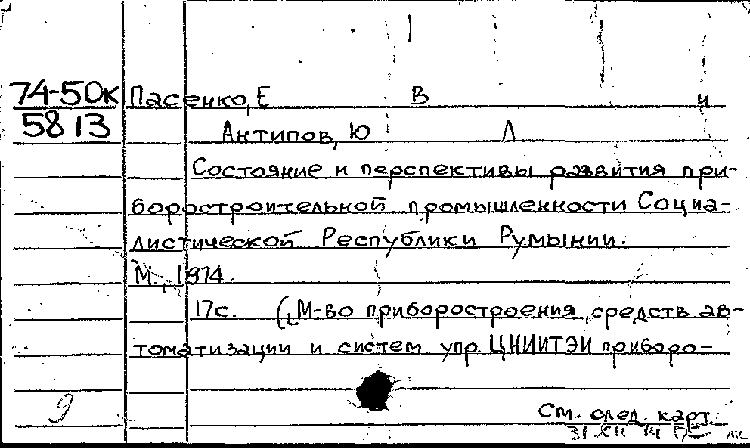 74-50к Пасенко, Е В и
5813 Антипов, Ю Л
Состояние и перспективы развития при-
боростроительной промышленности Социа-
листической Республики Румынии.
М., 1974.
17с. (М-во приборостроения, средств ав-
томатизации и систем упр. ЦНИИТЭИ приборо-
9 См. след. карт.